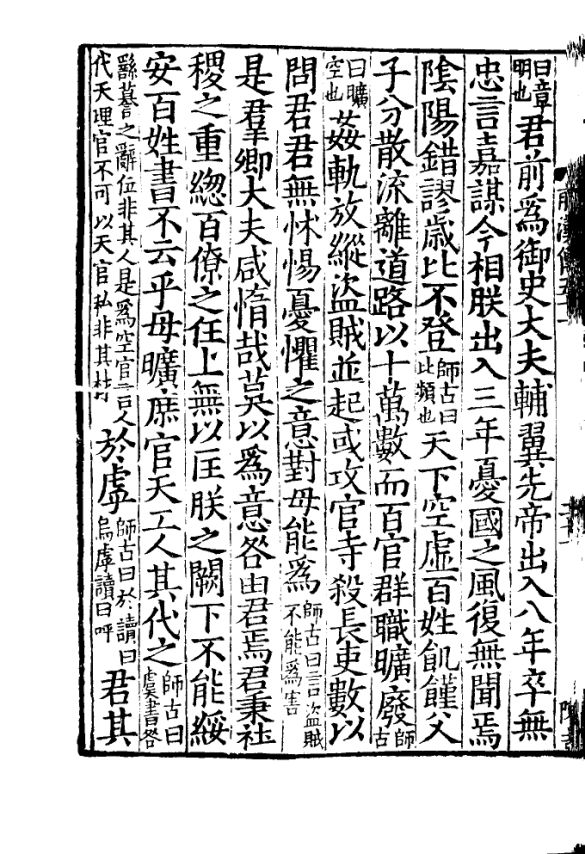 曰章明也君前爲御史大夫輔翼先帝出入八年卒無
忠言嘉謀今相朕出入三年憂國之風復無聞焉
陰陽錯謬歲比不登師古曰比頻也天下空虛百姓飢饉父
子分散流離道路以十萬數而百官群職曠廢師古
曰曠空也姦軌放縱盜賊並起或攻官寺殺長吏數以
問君君無怵惕憂懼之意對毋能爲師古曰言盜賊不能爲害
是羣卿大夫咸惰哉莫以爲意咎由君焉君秉社
稷之重緫百僚之任上無以匡朕之闕下不能綏
安百姓書不云乎毋曠庶官天工人其代之師古曰虞書咎
繇謩之辭位非其人是爲空官言人代天理官不可以天官私非其材於虖師古曰於讀曰烏虖讀曰呼君其